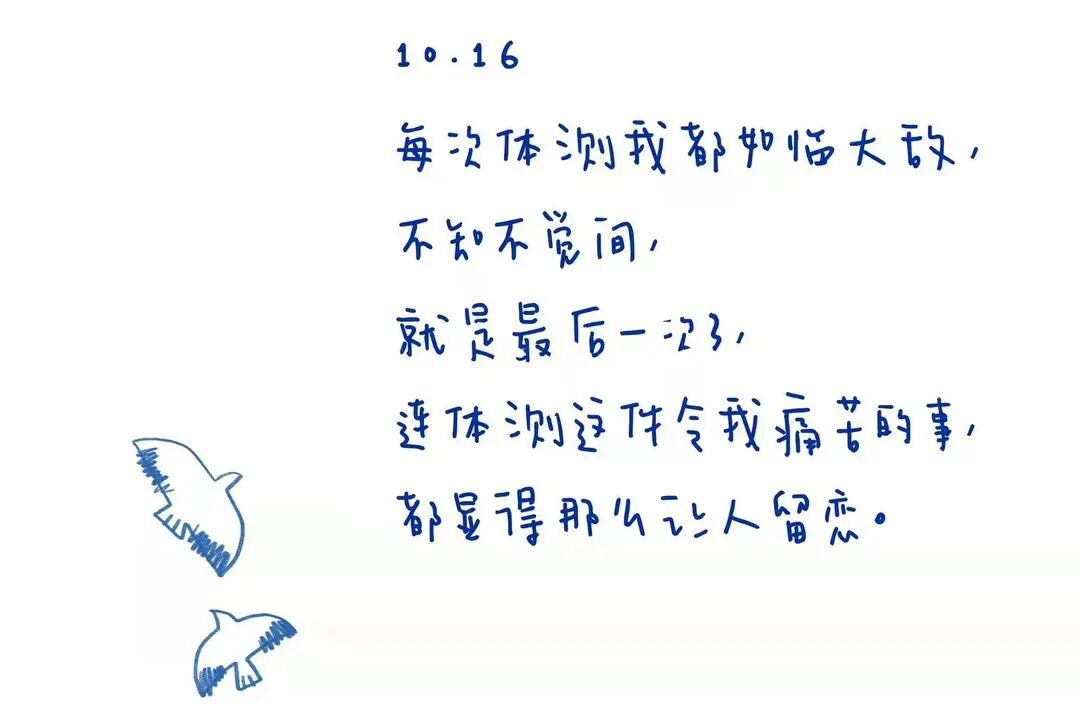 10.16
每次体测我都如临大敌,
不知不觉间,
就是最后一次了,
连体测这件令我痛苦的事,
都显得那么让人留恋。